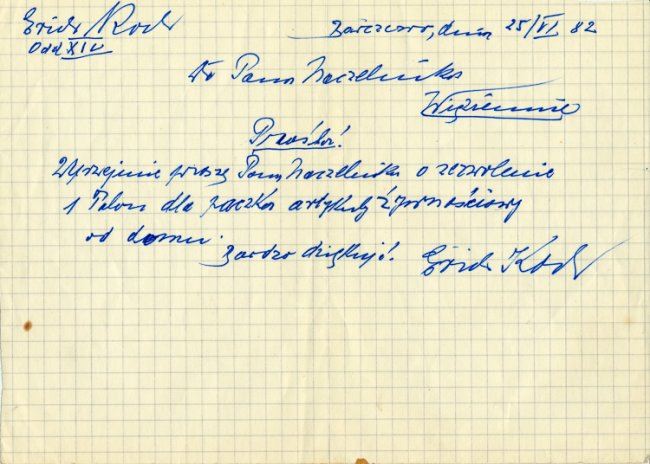 Erich Koch
Odd XIV
Barczewo, dnia 25/VI 82
Do Pana Naczelnika
Więziennie
Prośba!
Uprzejmie proszę Pana Naczelnika o zezwolenie
1 Talon dla paczka artykuły żywnościowy
od domu.
Bardzo dziękuję!
Erich Koch